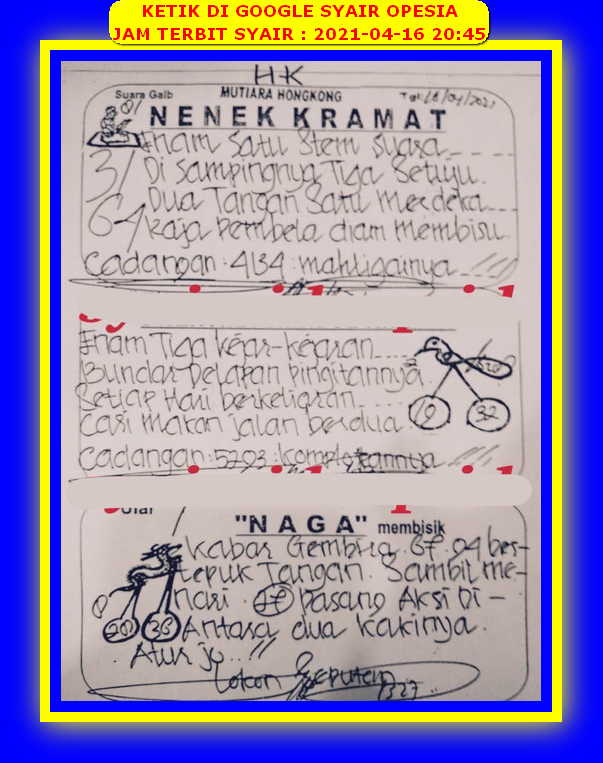 KETIK DI GOOGLE SYAIR OPESIA
JAM TERBIT SYAIR : 2021-04-16 20:45
HK
Suara Gaib MUTIARA HONGKONG
NENEK KRAMAT
Enam Satu Stem Suara
Di Sampingnya Tiga Setuju.
Dua Tangan Satu Merdeka
Raja Pembela diam membisu
3/
64/
Cadangan: 4134: mahligainya
Enam Tiga kejar-kejaran
Bundar Delapan Pingitannya
Setiap Hari berkeliaran
Cari makan jalan berdua
19 32
Cadangan: 5293: kompletannya
"NAGA" membisik
Kabar Gembira. 04 ber-
tepuk Tangan. Sambil me-
nari. Pasang Aksi Di -
Antara dua kakinya.
Atur jo